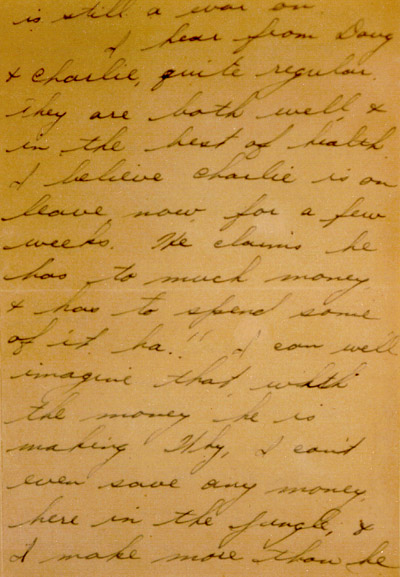 is still a war on.
I hear from Doug
& Charlie, quite regular.
They are both well, &
in the best of health
I believe Charlie is on
leave now for a few
weeks. He claims he
has to much money
& has to spend some
of it ha!! I can well
imagine that with
the money he is
making Why, I can't
even save any money
here in the jungle, &
I make more than he